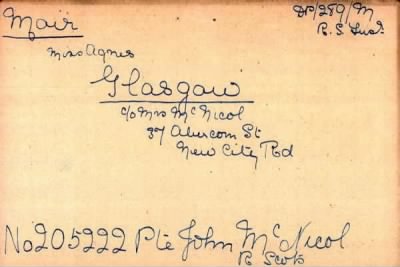 Mair
DP/289/M
R. S. Fus.
Miss Agnes
Glasgow
c/o Mrs McNicol
37 Abercorn St
New City Rd
No 205222 Pte John McNicol
R Scots